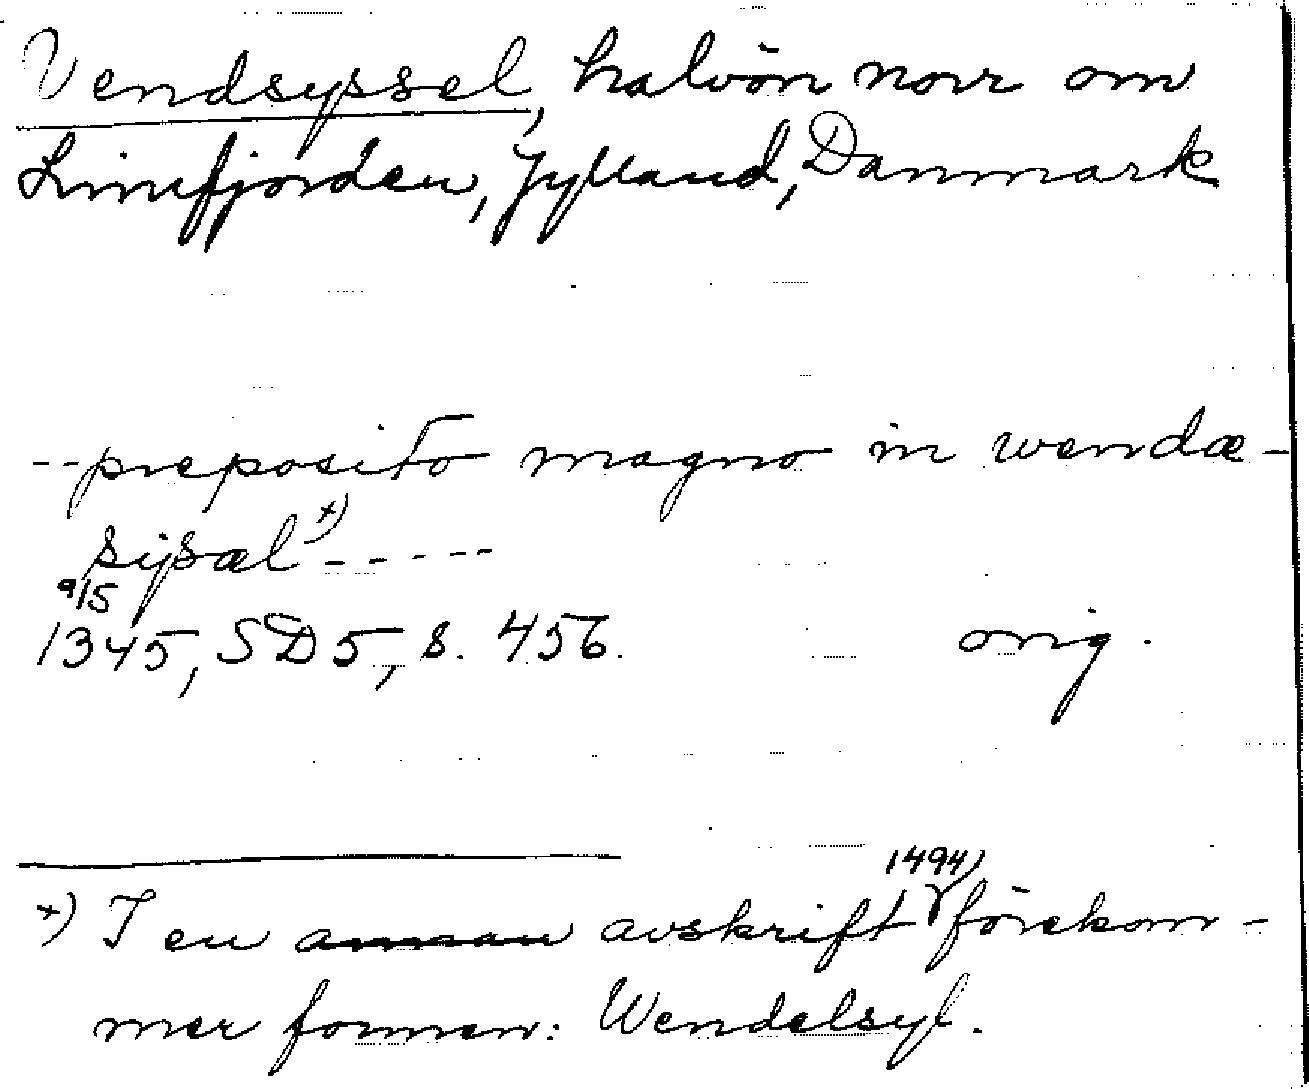 Vendsyssel, halvön norr om
Limfjorden, Jylland, Danmark
--preposito magno in wendæ-
sysæl x) -----
9/5
1345, SD5, s. 456.
orig.
1494)
x) I en annan avskrift förekom-
mer formen: Wendelsyl.